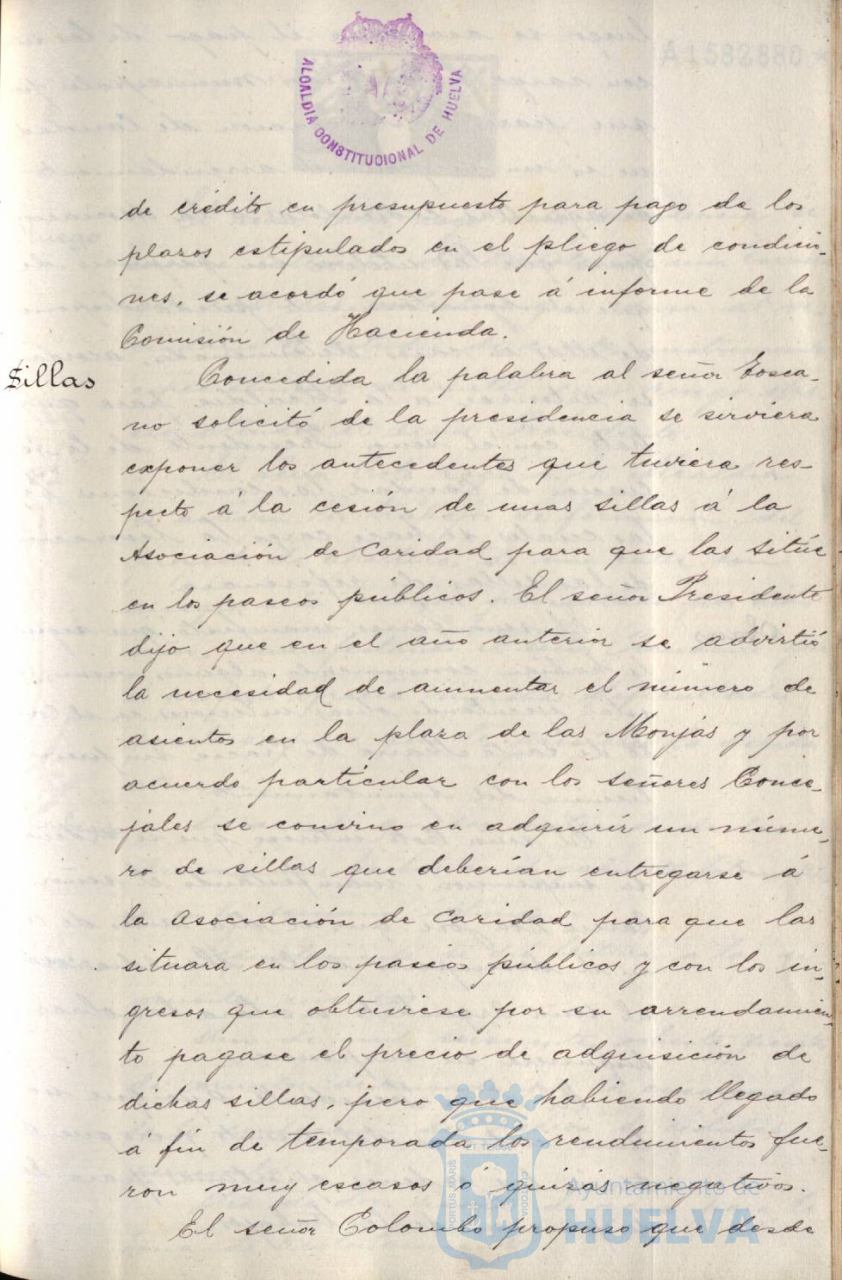 A1582880
ALCALDIA CONSTITUCIONAL DE HUELVA
de crédito en presupuesto para pago de los
plazos estipulados en el pliego de condicio-
nes, se acordó que pase á informe de la
Comisión de Hacienda.
Sillas
Concedida la palabra al señor Tosca-
no solicitó de la presidencia se sirviera
exponer los antecedentes que tuviera res-
pecto á la cesión de unas sillas á la
Asociación de Caridad para que las sitúe
en los paseos públicos. El señor Presidente
dijo que en el año anterior se advirtió
la necesidad de aumentar el número de
asientos en la plaza de las Monjas y por
acuerdo particular con los señores Conce-
jales se convino en adquirir un núme-
ro de sillas que deberían entregarse á
la Asociación de Caridad para que las
situara en los paseos públicos y con los in-
gresos que obtuviese por su arrendamien-
to pagase el precio de adquisición de
dichas sillas, pero que habiendo llegado
á fin de temporada los rendimientos fue-
ron muy escasos ó quizás negativos.
El señor Colombo propuso que desde
Ayuntamiento de
HUELVA